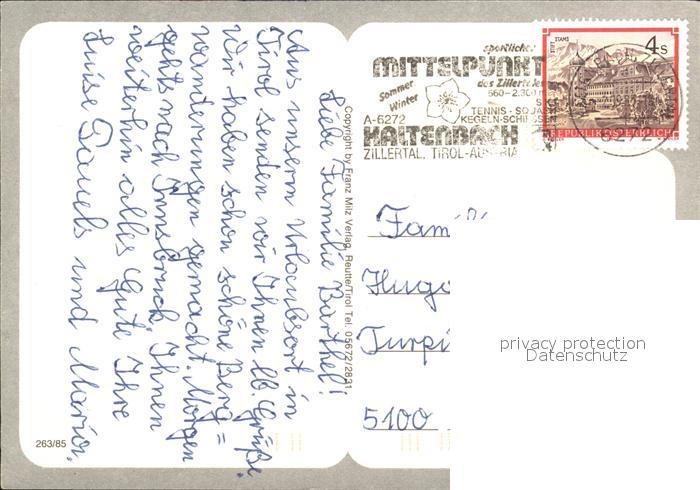 Liebe Familie Barthel!
Aus unserm Urlaubsort in
Tirol senden wir Ihnen lb. Grüße.
Wir haben schon schöne Berg=
wanderungen gemacht. Morgen
gehts nach Innsbruck Ihnen
weiterhin alles Gute Ihre
Luise und Marion.
263/85
Copyright by Franz Milz Verlag, Reutte/Tirol Tel. 05672/2831
sportlicher
MITTELPUNKT
des Zillertales
560-2.300 m
Sommer
Winter
TENNIS-SQUA
KEGELN-SCHIESSEN
A-6272
KALTENBACH
ZILLERTAL, TIROL-AUSTRIA
STIFT STAMS
4 S
REPUBLIK ÖSTERREICH
6272
Fami
Hugo
Turpi
5100
privacy protection
Datenschutz